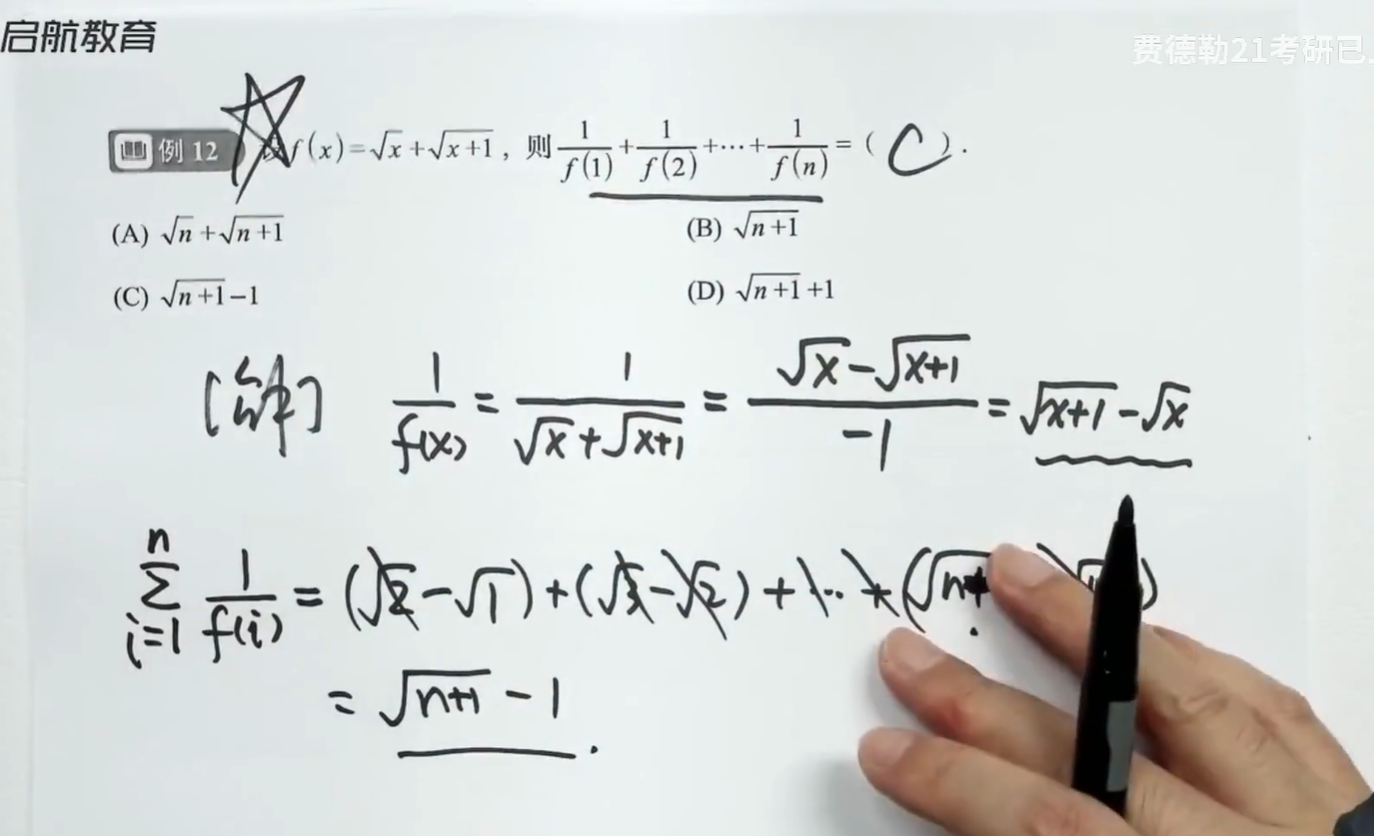 启航教育
费德勒21考研已
例 12 设 f(x)=√x+√(x+1)，则 1/f(1)+1/f(2)+⋯+1/f(n)=( C ).
(A) √n+√(n+1) (B) √(n+1)
(C) √(n+1)−1 (D) √(n+1)+1
[解] 1/f(x) = 1/(√x+√(x+1)) = (√x−√(x+1))/−1 = √(x+1)−√x
∑_{i=1}^{n} 1/f(i) = (√2−√1)+(√3−√2)+⋯+(√n+
= √(n+1) − 1.